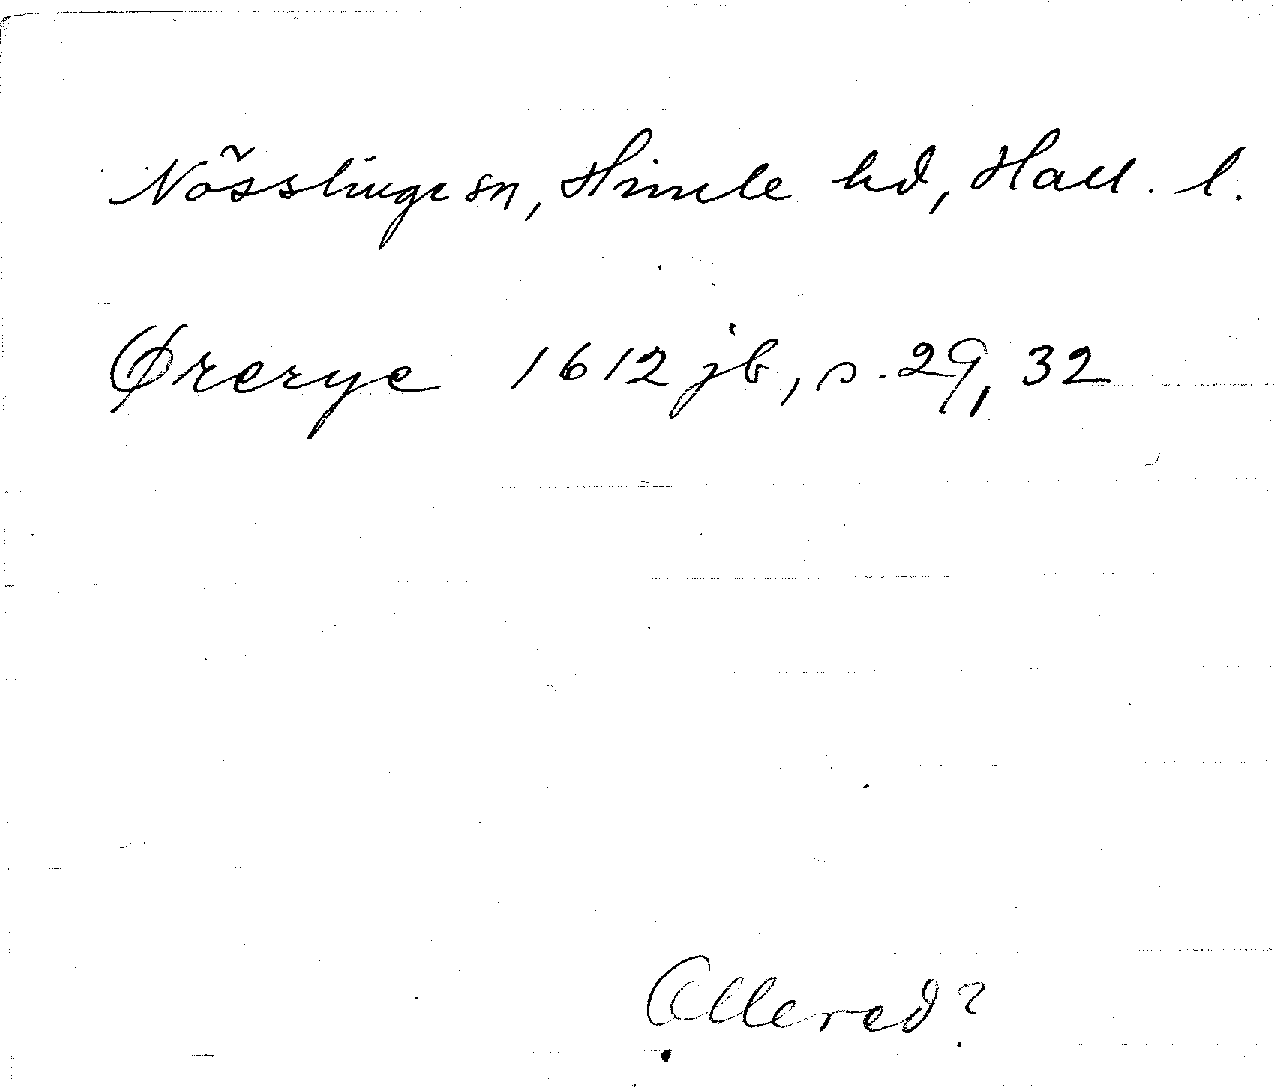 Nösslinge sn, Himle hd, Hall. l.
Ørerye 1612 jb, s. 29, 32
Ollered?